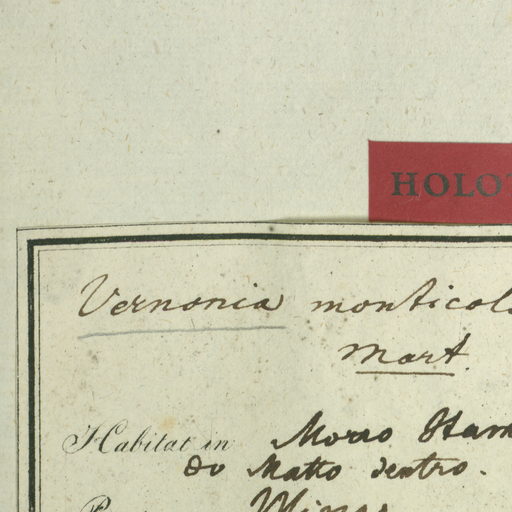 HOLO
Vernonia monticol
Mart.
Habitat in Morro
do Matto dentro.